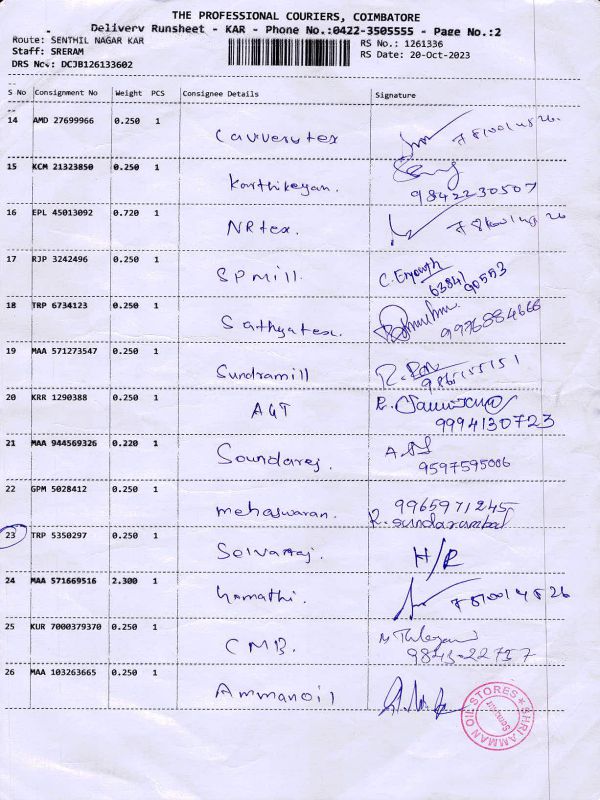 THE PROFESSIONAL COURIERS, COIMBATORE
Delivery Runsheet - KAR - Phone No.:0422-3505555 - Page No.:2
Route: SENTHIL NAGAR KAR
RS No.: 1261336
Staff: SRERAM
RS Date: 20-Oct-2023
DRS No.: DCJB126133602
S No Consignment No Weight PCS Consignee Details Signature
14 AMD 27699966 0.250 1 Cauverytex
15 KCM 21323850 0.250 1 Karthikeyan. 9842230507
16 EPL 45013092 0.720 1 NRtex.
17 RJP 3242496 0.250 1 SPmill. 63841 90553
18 TRP 6734123 0.250 1 Sathyatex. 9976884668
19 MAA 571273547 0.250 1 Sundramill
20 KRR 1290388 0.250 1 9994130723
21 MAA 944569326 0.220 1 Soundaraj. 9597595006
22 GPM 5028412 0.250 1 mehaswaran. 9965971245
R. Sundarambal
23 TRP 5350297 0.250 1 Selvarraj. H/R
24 MAA 571669516 2.300 1
25 KUR 7000379370 0.250 1 CMB.
26 MAA 103263665 0.250 1 Ammanoil
SHRI AMMAN OIL STORES